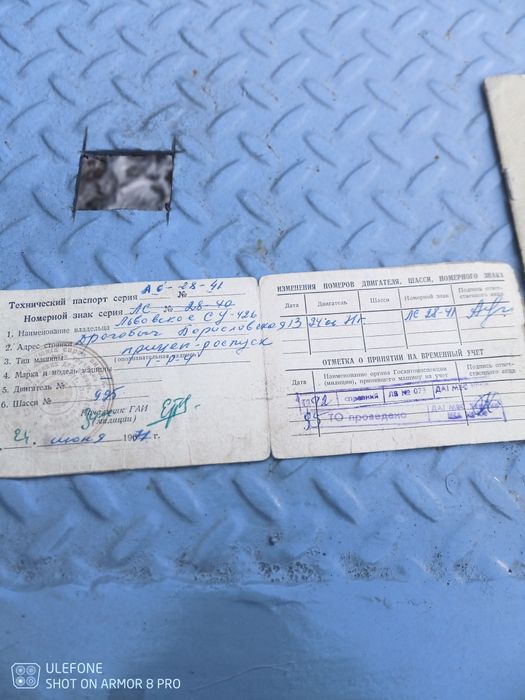 Технический паспорт серия АБ-28-41 №
Номерной знак серия ЛС № 28-40
1. Наименование владельца Львовское СУ-426
2. Адрес стоянки Дрогобыч Бориславская 9
3. Тип машины прицеп-роспуск
(опознавательная
4. Марка и модель машины 1-Р-4
5. Двигатель №
6. Шасси № 995
Начальник ГАИ
(милиции)
24. июня 19 г.
ИЗМЕНЕНИЯ НОМЕРОВ ДВИГАТЕЛЯ, ШАССИ, НОМЕРНОГО ЗНАКА
Дата Двигатель Шасси Номерной знак Подпись ответственного лица
ЛС 28-41
ОТМЕТКА О ПРИНЯТИИ НА ВРЕМЕННЫЙ УЧЕТ
Дата Наименование органа Госавтоинспекции (милиции), принявшего машину на учет Подпись ответственного лица
92 справний ЛВ № 073 ДАІ МРВ
95 ТО проведено ДАІ
ULEFONE
SHOT ON ARMOR 8 PRO